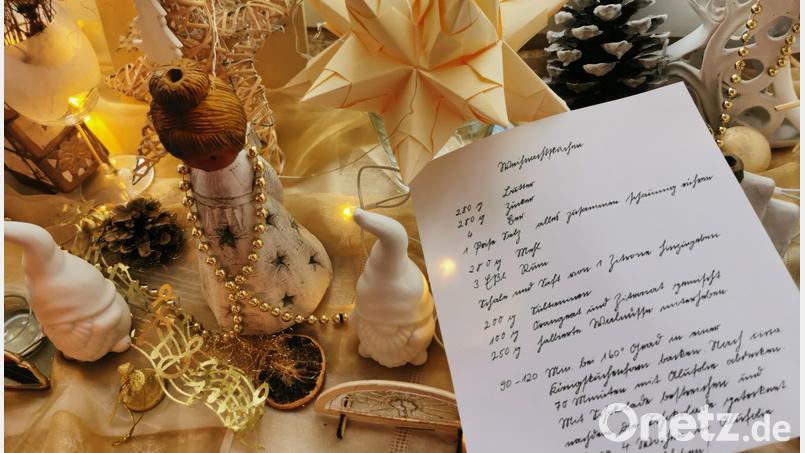 Weihnachtskuchen
250 g Butter
250 g Zucker
4 Eier
1 Prise Salz alles zusammen schaumig rühren
250 g Mehl
3 Eßl Rum
Schale und Saft von 1 Zitrone hinzugeben
200 g Sultaninen
100 g Orangeat und Zitronat gemischt
250 g halbierte Walnüsse unterheben
90-120 Min. bei 160° Grad in einer
Königskuchenform backen. Nach circa
70 Minuten mit Alufolie abdecken.
bestreichen und
nach dem getrocknet
4 Wochen
Onetz.de